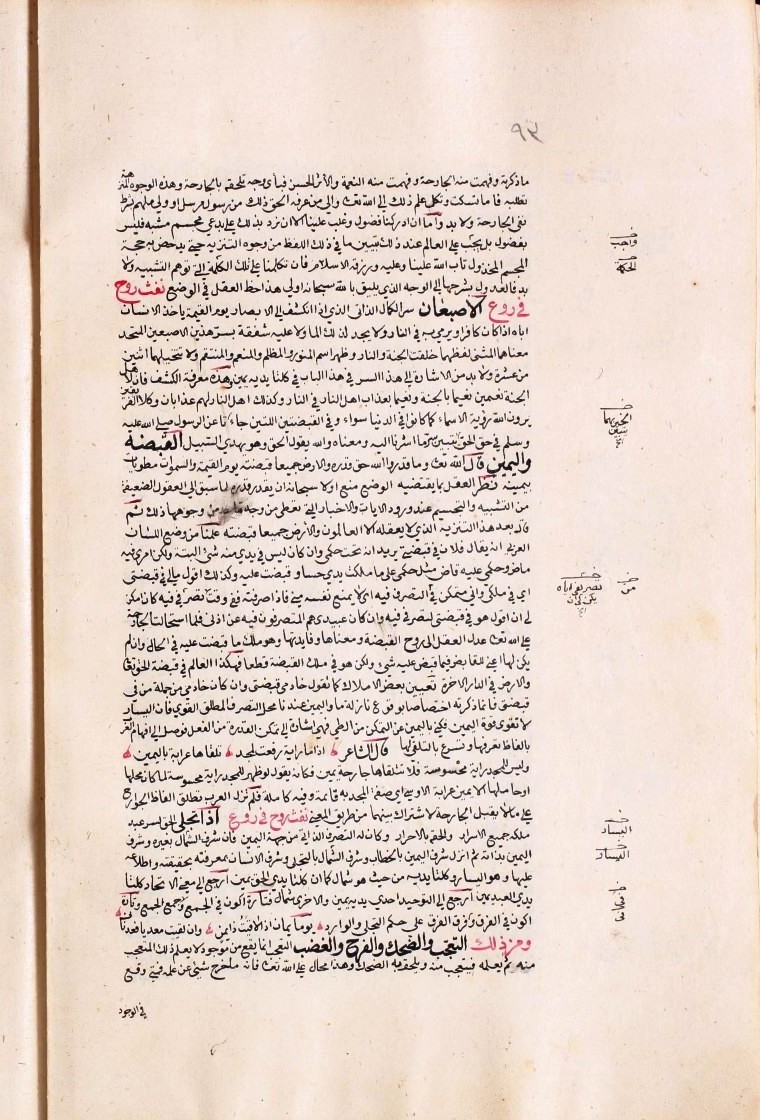 ٩٣
ما ذكرته وفهمت منه الجارحة وفهمت منه النعمة والأثر الحسن فبأي وجه تلحقه بالجارحة وهذه الوجوه المنزهة
تطلبه فاما نسكت ونكل علم ذلك إلى الله تعالى وإلى من عرفه الحق ذلك من رسول مرسل او ولي ملهم بشرط
نفي الجارحة ولا بد وأما ان ادركنا فضول وغلب علينا الا ان نرد بذلك على بدعي مجسم مشبه فليس
بفضول بل يجب على العالم عند ذلك تبيين ما في ذلك اللفظ من وجوه التنزيه حتى يدحض به حجة
المجسم المخذول تاب الله علينا وعليه ورزقه الاسلام فان تكلمنا على تلك الكلمة التي توهم التشبيه ولا
بد فالعدول بشرحها إلى الوجه الذي يليق بالله سبحانه اولى هذا حظ العقل في الوضع نفث روح
في روع الاصبعان سر الكمال الذاتي الذي اذا انكشف إلى الابصار يوم القيمة ياخذ الانسان
اباه اذا كان كافرا ويرمي به في النار ولا يجد لذلك الما ولا عليه شفقة بسر هذين الاصبعين المتحد
معناهما المثنى لفظهما خلقت الجنة والنار وظهر اسم المنور والمظلم والمنعم والمنتقم ولا تتخيلهما اثنين
من عشرة ولا بد من الاشارة إلى هذا السر في هذا الباب في كلتا يديه يمين وهذه معرفة الكشف فان لاهل
الجنة نعيمين نعيما بالجنة ونعيما بعذاب اهل النار في النار وكذلك اهل النار لهم عذابان وكلا الفريقين
يرون الله رؤية الاسماء كما كانوا في الدنيا سواء وفي القبضتين اللتين جاءتا عن الرسول صلى الله عليه
وسلم في حق الحق تبيين سر ما اشرنا اليه ومعناه والله يقول الحق وهو يهدي السبيل القبضة
واليمين قال الله تعالى وما قدروا الله حق قدره والارض جميعا قبضته يوم القيمة والسموات مطويات
بيمينه نظر العقل بما يقتضيه الوضع منع اولا سبحانه ان يقدر قدره لما سبق إلى العقول الضعيفة
من التشبيه والتجسيم عند ورود الايات والاخبار التي تعطي من وجه ما من وجوهها ذلك ثم
قال بعد هذا التنزيه الذي لا يعقله الا العالمون والارض جميعا قبضته علمنا من وضع اللسان
العربي ان يقال فلان في قبضتي يريد انه تحت حكمي وان كان ليس في يدي منه شئ البتة ولكن امري فيه
ماض وحكمي عليه قاض مثل حكمي على ما ملكت يدي حسا وقبضت عليه وكذلك اقول مالي في قبضتي
اي في ملكي واني متمكن في التصرف فيه اي لا يمنع نفسه مني فاذا صرفته ففي وقت تصرفي فيه كان امكن
لي ان اقول هو في قبضتي لتصرفي فيه وان كان عبيدي هم المتصرفون فيه عن اذني فلما استحالت الجارحة
على الله تعالى عدل العقل إلى روح القبضة ومعناها وفايدتها وهو ملك ما قبضت عليه في الحال وان لم
يكن لها اعني للقابض فيما قبض عليه شئ ولكن هو في ملك القبضة قطعا فهكذا العالم في قبضة الحق تعالى
والارض في الدار الاخرة تعيين بعض الاملاك كما تقول خادمي في قبضتي وان كان خادمي من جملة من في
قبضتي فانما ذكرته اختصاصا بوقوع نازلة ما واليمين عندنا محل التصرف المطلق القوي فان اليسار
لا تقوى قوة اليمين فكنى باليمين عن التمكن من الطي فهي اشارة إلى تمكن القدرة من الفعل فوصل إلى افهام العرب
بالفاظ تعرفها وتسرع بالتلقي لها قال الشاعر اذا ما راية رفعت لمجد تلقاها عرابة باليمين
وليس للمجد راية محسوسة فلا تتلقاها جارحة يمين فكانه يقول لو ظهر للمجد راية محسوسة لما كان محلها
او حاملها الا يمين عرابة الاوسي اي صفة المجد به قائمة وفيه كاملة فلم تزل العرب تطلق الفاظ الجوارح
على ما لا يقبل الجارحة لاشتراك بينهما من طريق المعنى نفث روح في روع اذا تجلى الحق لسر عبد
ملكه جميع الاسرار والحقه بالاحرار وكان له التصرف الذاتي من جهة اليمين فان شرف الشمال بغيره وشرف
اليمين بذاته ثم انزل شرف اليمين بالخطاب وشرف الشمال بالتجلي وشرف الانسان بمعرفته بحقيقته واطلاعه
عليها وهو اليسار وكلتا يديه من حيث هو شمال كما ان كلتا يدي الحق يمين ارجع إلى معنى الاتحاد كلتا
يدي العبد يمين ارجع إلى التوحيد احدى يديه يمين والاخرى شمال فتارة اكون في الجمع وجمع الجمع وتارة
اكون في الفرق وفرق الفرق على حكم التجلي والوارد يوما يمان اذا لاقيت ذا يمن وان لقيت معديا فعدناني
ومن ذلك التعجب والضحك والفرح والغضب التعجب انما يقع من موجود لا يعلم ذلك المتعجب
منه ثم يعلمه فيتعجب منه ويلحق به الضحك وهذا محال على الله تعالى فانه ما خرج شئ عن علمه فمتى وقع
في الوجود
واجب
الحكمة
من
تصريفي اياه
اليسار
اليسار